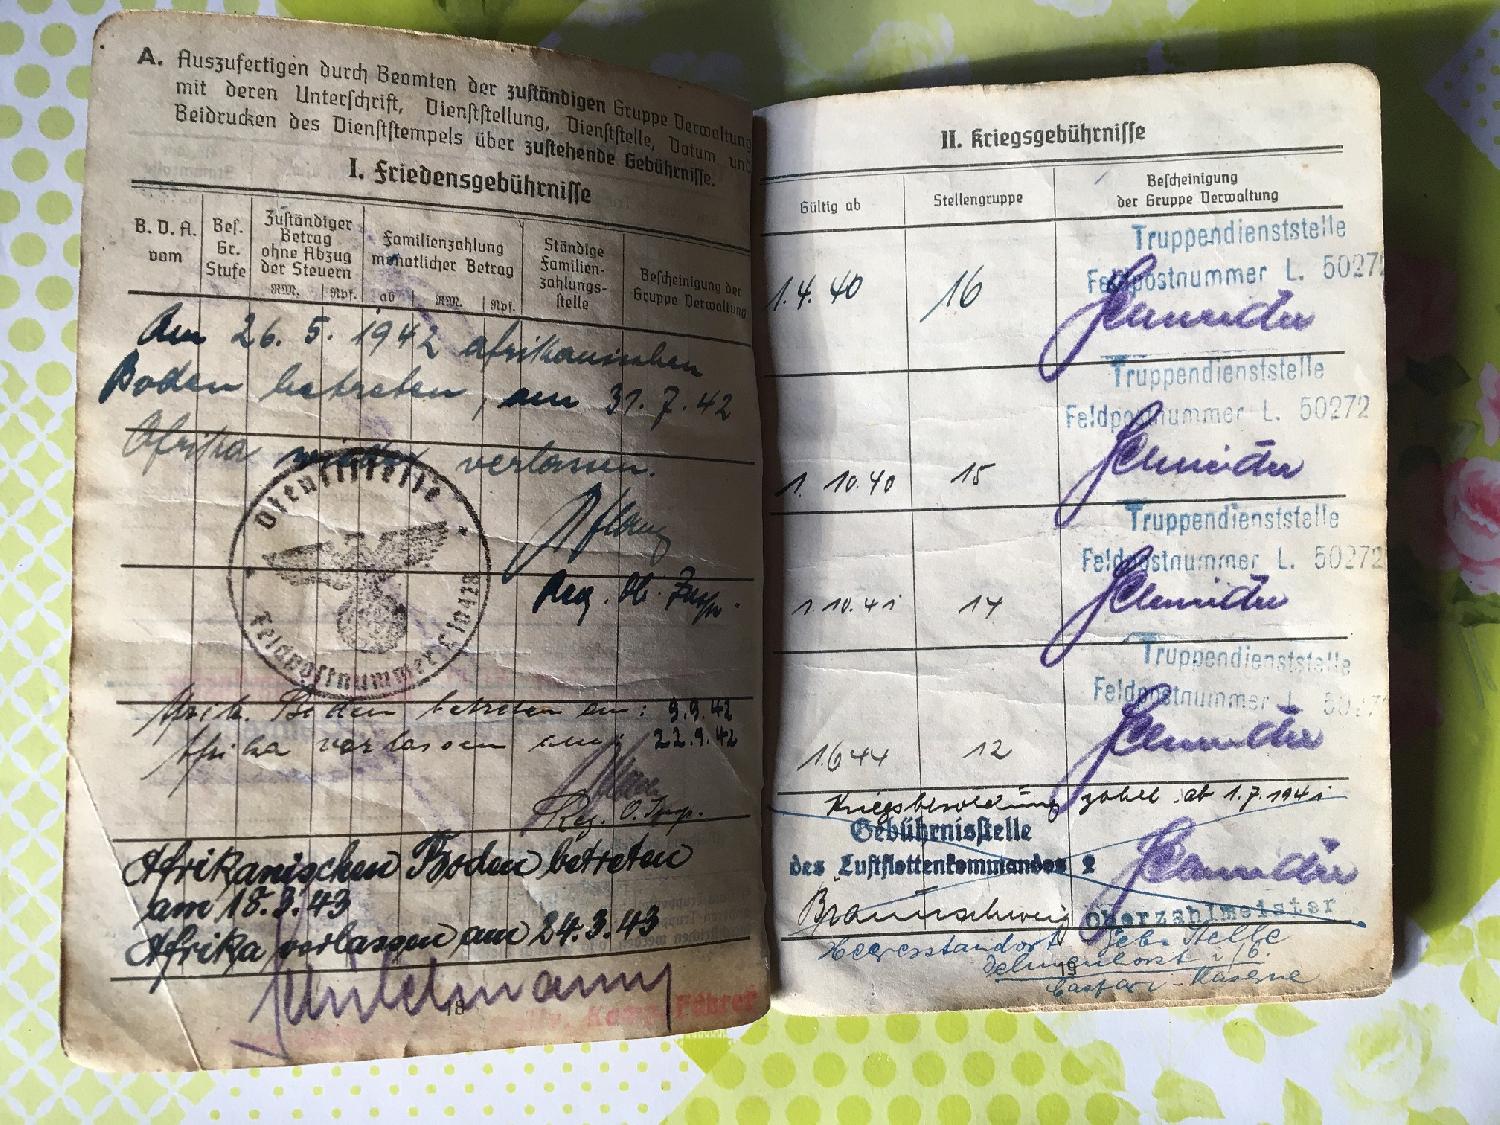 A. Auszufertigen durch Beamten der zuständigen Gruppe Verwaltung
mit deren Unterschrift, Dienststellung, Dienststelle, Datum und
Beidrucken des Dienststempels über zustehende Gebührnisse.
I. Friedensgebührnisse
B. D. A. vom
Bes. Gr. Stufe
Zuständiger Betrag ohne Abzug der Steuern
RM. Rpf.
Familienzahlung monatlicher Betrag
ab RM. Rpf.
Ständige Familien-zahlungs-stelle
Bescheinigung der Gruppe Verwaltung
Am 26. 5. 1942 afrikanischen
Boden betreten, am 31. 7. 42
Afrika wieder verlassen.
Dienststelle
Feldpostnummer
Reg. O. Insp.
Afrik. Boden betreten am: 9.9.42
Afrika verlassen am: 22.9.42
Reg. O. Insp.
Afrikanischen Boden betreten
am 18.3.43
Afrika verlassen am 24.3.43
18
II. Kriegsgebührnisse
Gültig ab
Stellengruppe
Bescheinigung
der Gruppe Verwaltung
Truppendienststelle
Feldpostnummer L. 50272
1. 4. 40 16 Schneider
Truppendienststelle
Feldpostnummer L. 50272
1. 10. 40 15 Schneider
Truppendienststelle
Feldpostnummer L. 50272
1. 10. 41 14 Schneider
Truppendienststelle
Feldpostnummer L. 5027
1 6 44 12 Schneider
Kriegsbesoldung ab 1.7.1941
Gebührnisstelle
des Luftflottenkommandos 2 Schneider
Braunschweig Oberzahlmeister
Heeresstandort Geb. Stelle
Delmenhorst
19
Caspari-Kaserne